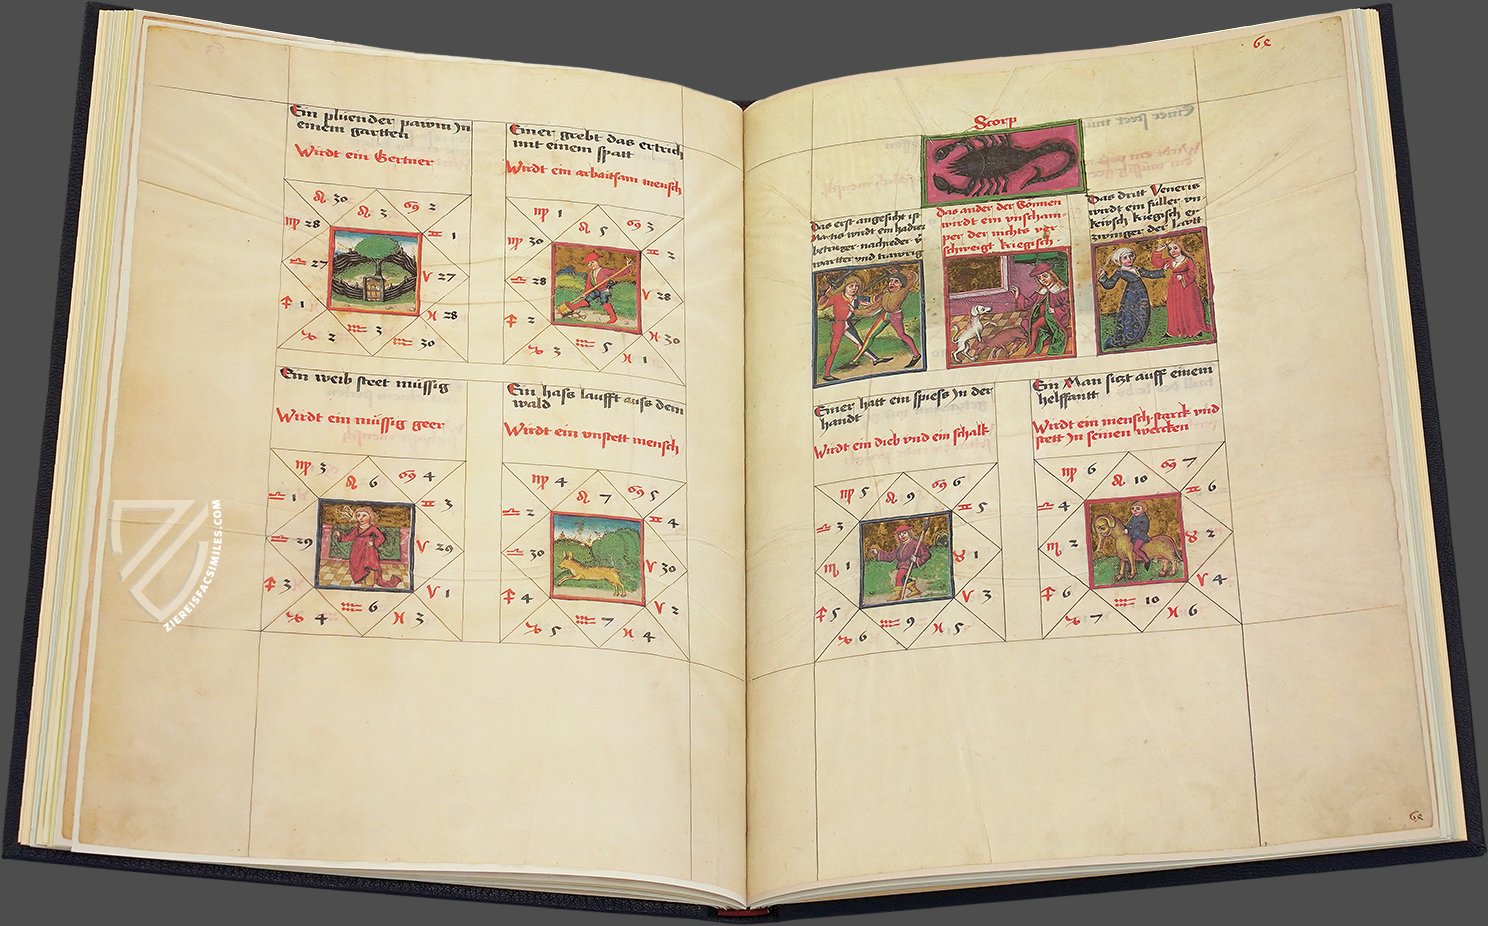 Ein plüender pawm Jn
einem gartten
Wirdt ein Gertner
♌ 30
♌ 3
♋ 2
♍ 28
♊ 1
♎ 27
V 27
♐ 1
♓ 28
♑ 2
♒ 3
♒ 30
Einer grebt das ertrich
mit einem spatt
Wirdt ein arbaitsam mensch
♍ 1
♌ 5
♋ 3
♍ 30
♊ 2
♎ 28
V 28
♐ 2
♓ 30
♑ 3
♒ 5
♓ 1
Ein weib steet müssig
Wirdt ein müssig geer
♍ 3
♌ 6
♋ 4
♎ 1
♊ 3
♎ 29
V 29
♐ 3
V 1
♑ 4
♒ 6
♓ 3
Ein hass laufft auss dem
wald
Wirdt ein vnstett mensch
♍ 4
♌ 7
♋ 5
♎ 2
♊ 4
♎ 30
V 30
♐ 4
V 2
♑ 5
♒ 7
♓ 4
Scorp
Das erst angesicht ist
Martis wirdt ein hadrer
betrieger nachreder
vnd trawrig
Das ander der Sonnen
wirdt ein vnscham-
per der nichts ver-
schweigt kriegisch
Das dritt Veneris
wirdt ein füller vn
kriegisch er
zwinger der
Einer hatt ein spiess Jn der
handt
Wirdt ein dieb vnd ein schalk
♍ 5
♌ 9
♋ 6
♎ 3
♊ 5
♏ 1
♉ 1
♐ 5
V 3
♑ 6
♒ 9
♓ 5
Ein Man sitzt auff einem
helffantt
Wirdt ein mensch starck vnd
stett Jn seinen wercken
♍ 6
♌ 10
♋ 7
♎ 4
♊ 6
♏ 2
♉ 2
♐ 6
V 4
♑ 7
♒ 10
♓ 6
ZIEREISFACSIMILES.COM